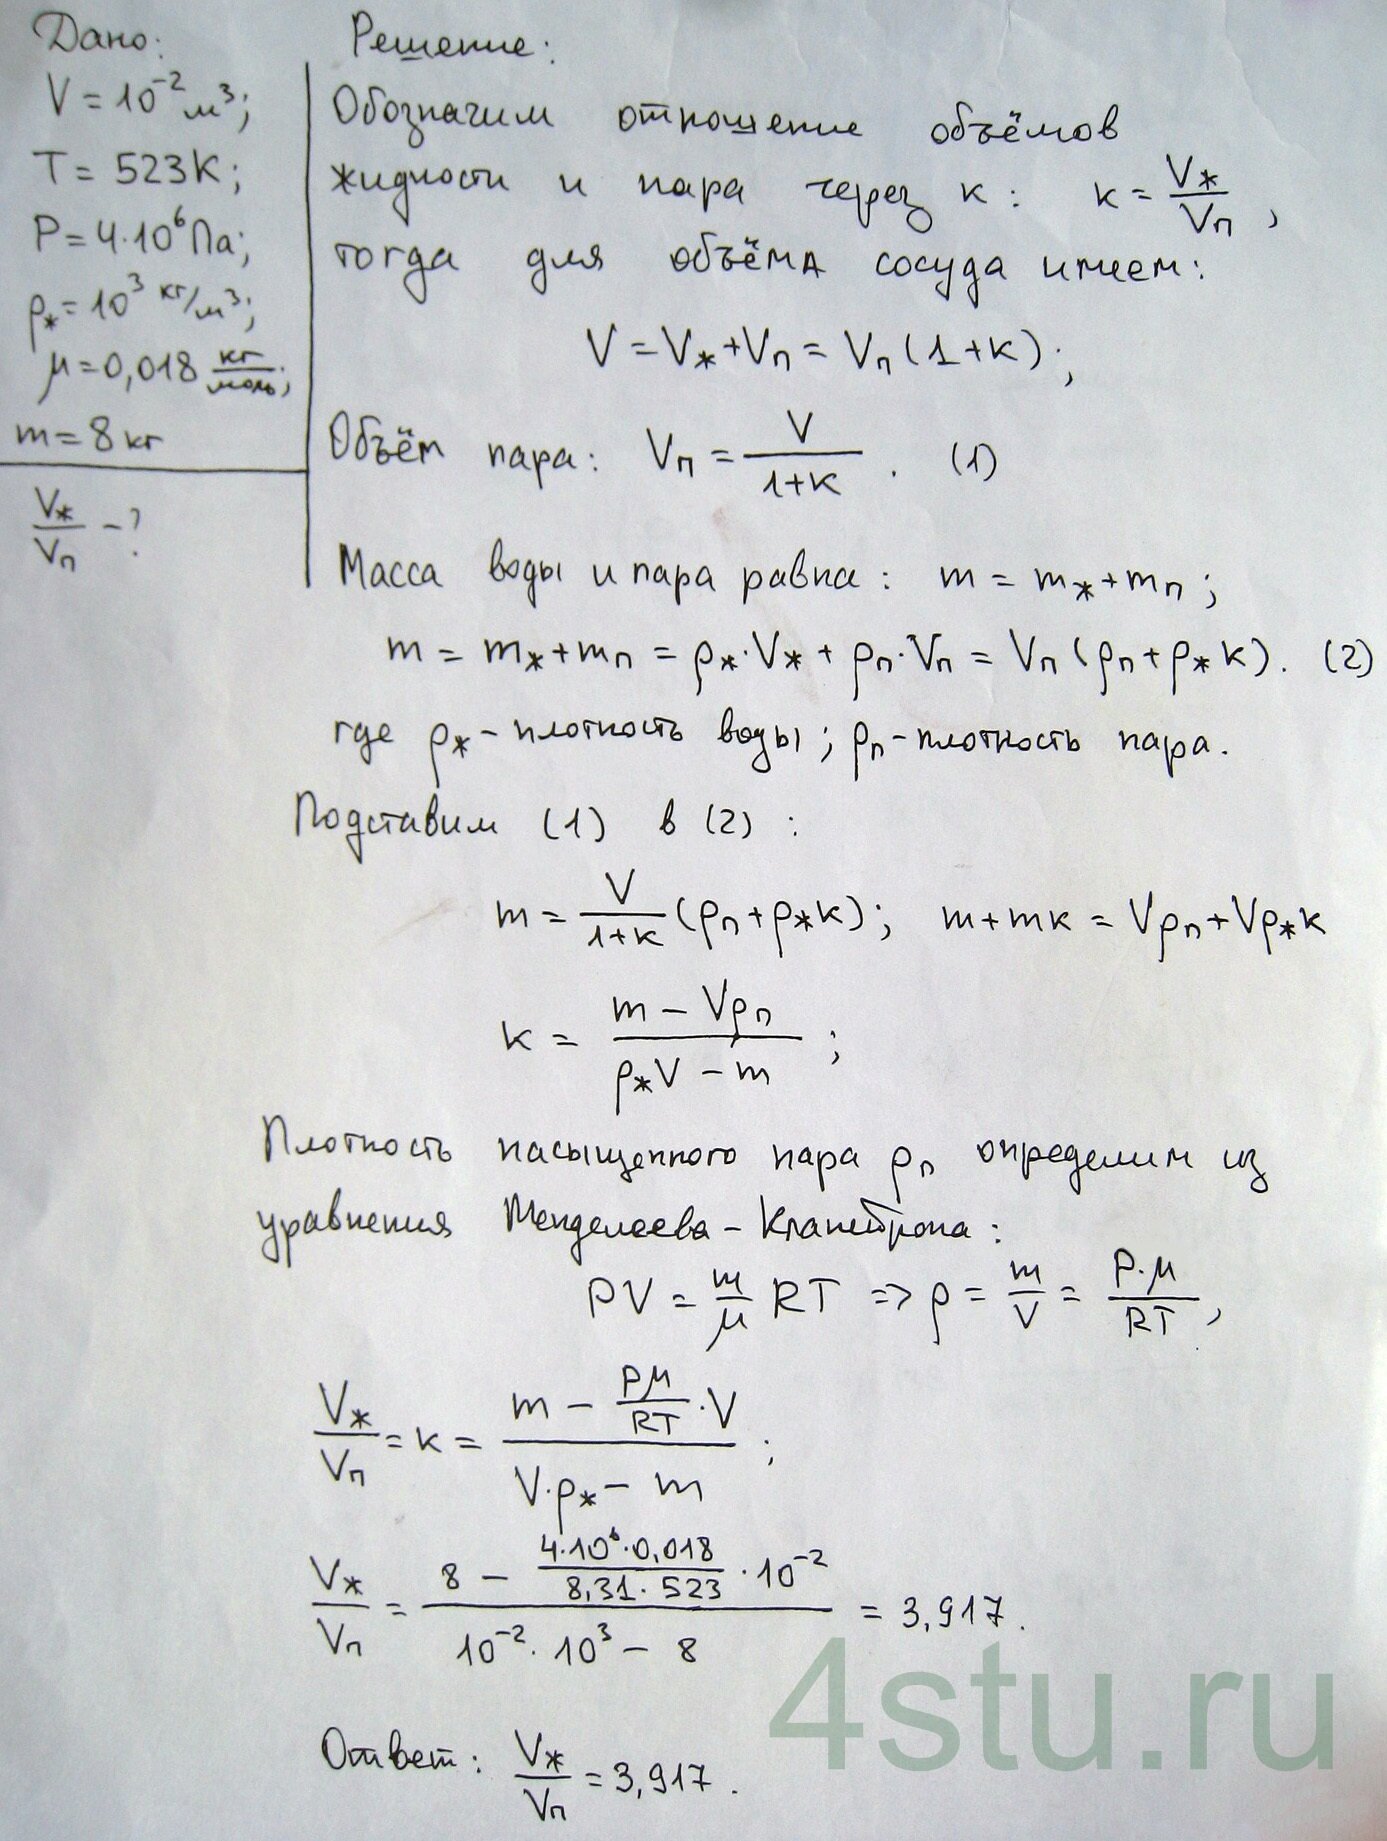 Дано:
V = 10⁻² м³;
T = 523К;
P = 4·10⁶ Па;
ρж = 10³ кг/м³;
μ = 0,018 кг/моль;
m = 8 кг
Vж/Vп - ?
Решение:
Обозначим отношение объёмов
жидкости и пара через к: к = Vж/Vп,
тогда для объёма сосуда имеем:
V = Vж + Vп = Vп (1+к);
Объём пара: Vп = V/(1+к). (1)
Масса воды и пара равна: m = mж + mп;
m = mж + mп = ρж·Vж + ρп·Vп = Vп (ρп + ρж к). (2)
где ρж - плотность воды; ρп - плотность пара.
Подставим (1) в (2):
m = V/(1+к) (ρп + ρж к); m + mк = Vρп + Vρж к
к = (m - Vρп)/(ρж V - m);
Плотность насыщенного пара ρп определим из
уравнения Менделеева - Клапейрона:
PV = m/μ RT => ρ = m/V = P·μ/RT,
Vж/Vп = к = (m - Pμ/RT · V)/(V·ρж - m);
Vж/Vп = (8 - (4·10⁶·0,018)/(8,31·523) · 10⁻²)/(10⁻²·10³ - 8) = 3,917.
Ответ: Vж/Vп = 3,917.
4stu.ru